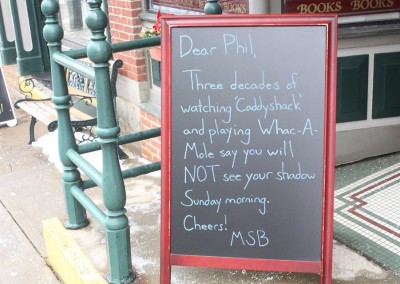 BOOKS BOOKS
Dear Phil,
Three decades of
watching 'Caddyshack'
and playing Whac-A-
Mole say you will
NOT see your shadow
Sunday morning.
Cheers!
MSB